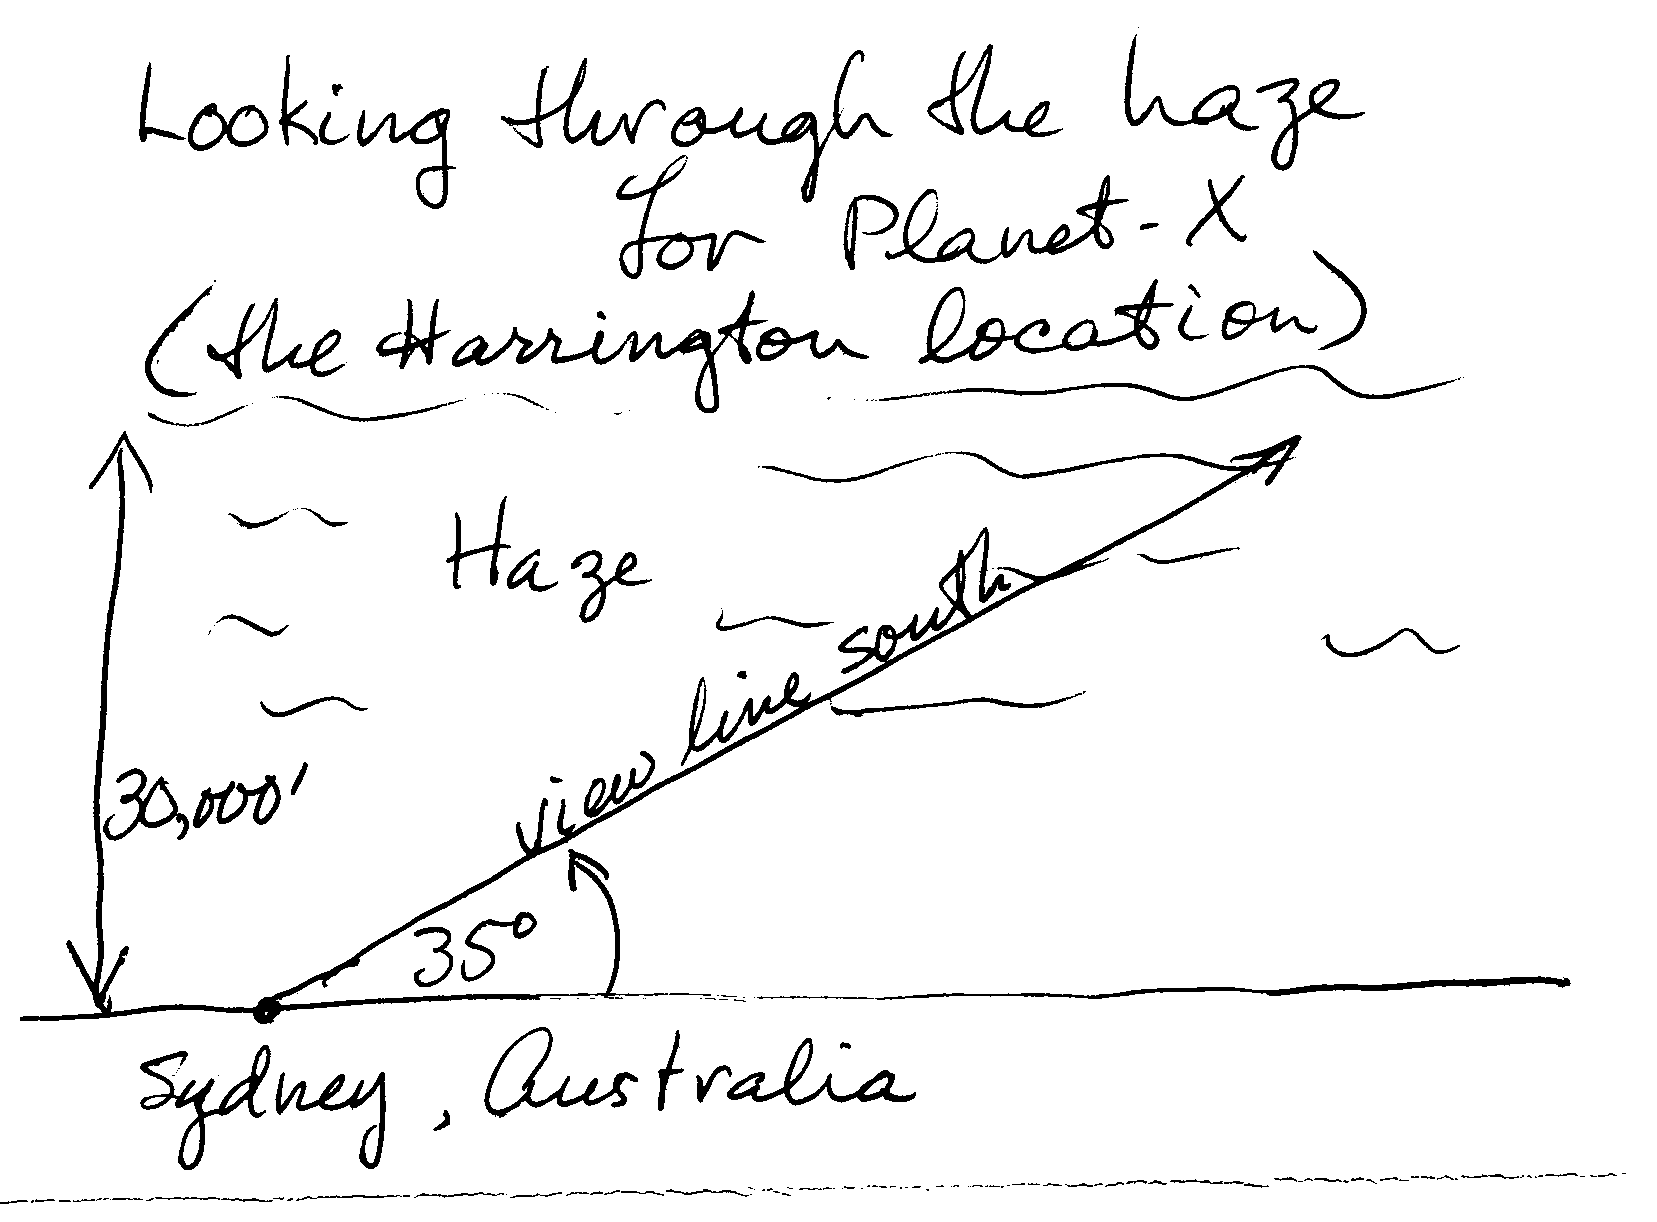 Looking through the haze
for Planet-X
(the Harrington location)
Haze
view line south
30,000'
35°
Sydney, Australia